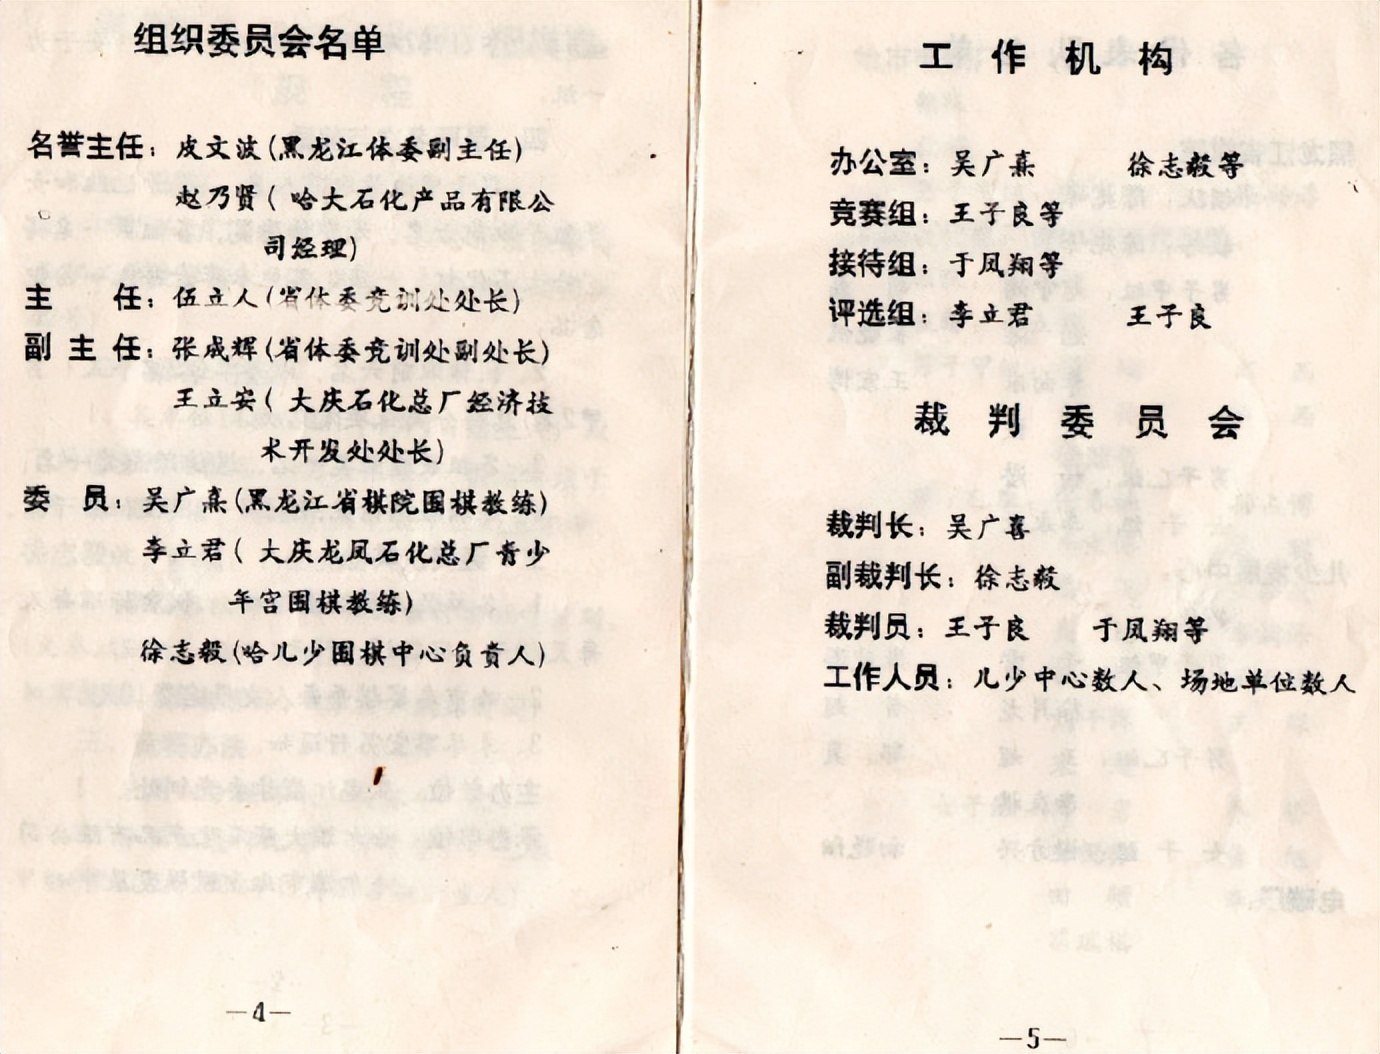 组织委员会名单
名誉主任：皮文波(黑龙江体委副主任)
赵乃贤( 哈大石化产品有限公
司经理)
主　　任：伍立人(省体委竞训处处长)
副 主 任：张成辉(省体委竞训处副处长)
王立安( 大庆石化总厂经济技
术开发处处长)
委　员：吴广熹(黑龙江省棋院围棋教练)
李立君( 大庆龙凤石化总厂青少
年宫围棋教练)
徐志毅(哈儿少围棋中心负责人)
—4—
工 作 机 构
办公室：吴广熹　　徐志毅等
竞赛组：王子良等
接待组：于凤翔等
评选组：李立君　　王子良
裁 判 委 员 会
裁判长：吴广喜
副裁判长：徐志毅
裁判员：王子良　　于凤翔等
工作人员：儿少中心数人、场地单位数人
—5—